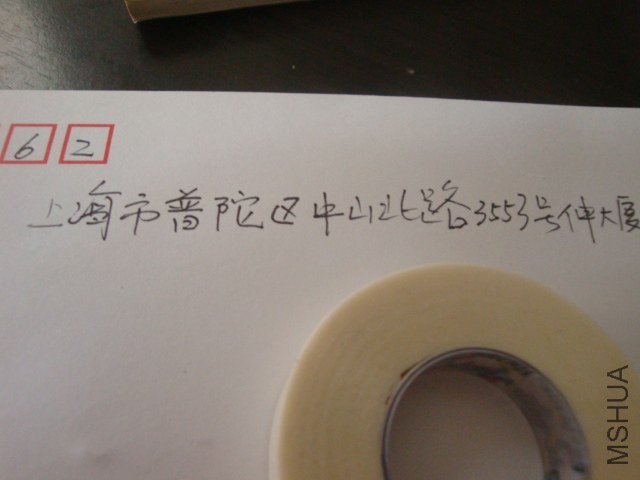 62
上海市普陀区中山北路3553号伸大厦
MSHUA